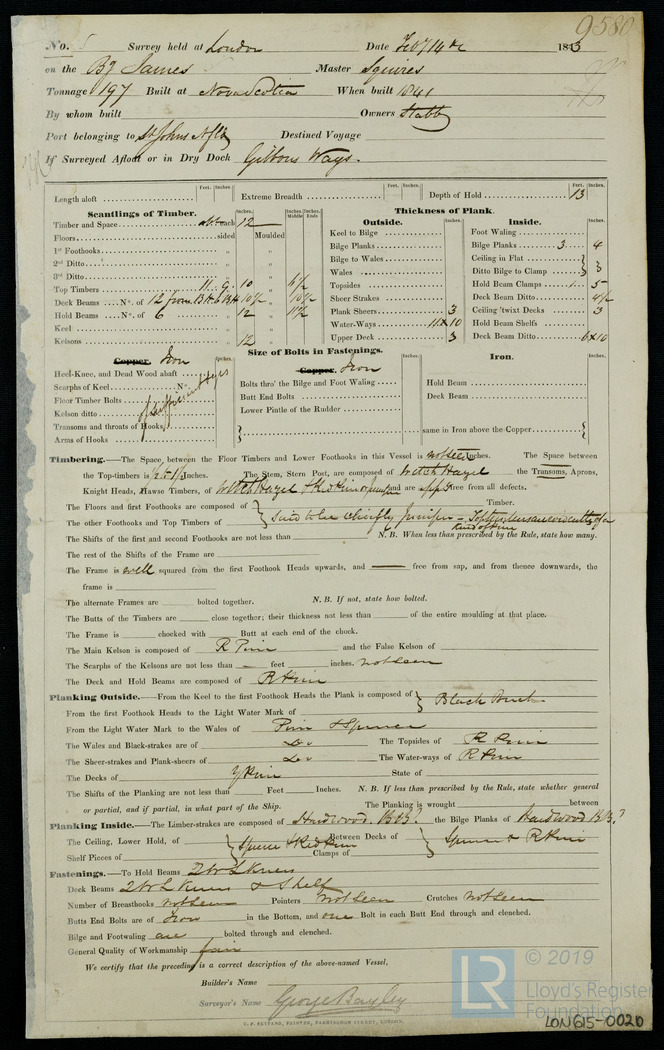 9580
No. Survey held at London Date Feby 14th 1843
on the Bg James Master Squires
Tonnage 197 Built at Nova Scotia When built 1841
By whom built Owners Stabb
Port belonging to St Johns Nfld Destined Voyage
If Surveyed Afloat or in Dry Dock Gibbons Ways.
Length aloft Feet. Inches. Extreme Breadth Feet. Inches. Depth of Hold Feet. 13 Inches.
Scantlings of Timber. Inches. Inches. Middle Inches. Ends Thickness of Plank.
Outside. Inches. Inside. Inches.
Timber and Space each 12 Keel to Bilge Foot Waling
Floors sided Moulded Bilge Planks Bilge Planks 3 4
1st Foothooks " " Bilge to Wales Ceiling in Flat } 3
2nd Ditto " " Wales Ditto Bilge to Clamp
3rd Ditto " " Topsides Hold Beam Clamps 1 5
Top Timbers 11. 9. 10 " 6½ Sheer Strakes Deck Beam Ditto 4½
Deck Beams No. of 12 from 10½ " 10½ Plank Sheers 3 Ceiling 'twixt Decks 3
Hold Beams No. of 6 12 " 11½ Water-Ways 11 x 10 Hold Beam Shelfs
Keel " Upper Deck 3 Deck Beam Ditto 6 x 10
Kelsons 12
Size of Bolts in Fastenings.
Copper. Iron Inches. Copper. Iron Inches. Iron. Inches.
Heel-Knee, and Dead Wood abaft Bolts thro' the Bilge and Foot Waling Hold Beam
Scarphs of Keel No. Butt End Bolts Deck Beam
Floor Timber Bolts Lower Pintle of the Rudder
Kelson ditto of Sufficient Sizes
Transoms and throats of Hooks } same in Iron above the Copper {
Arms of Hooks
Timbering.—The Space between the Floor Timbers and Lower Foothooks in this Vessel is not seen Inches. The Space between
the Top-timbers is Inches. The Stem, Stern Post, are composed of Witch Hazel the Transoms, Aprons,
Knight Heads, Hawse Timbers, of Witch Hazel & Red Pine or Juniper and are free from all defects.
The Floors and first Foothooks are composed of } Timber.
The other Foothooks and Top Timbers of Said to be chiefly Juniper
The Shifts of the first and second Foothooks are not less than N. B. When less than prescribed by the Rule, state how many.
The rest of the Shifts of the Frame are
The Frame is well squared from the first Foothook Heads upwards, and — free from sap, and from thence downwards, the
frame is
The alternate Frames are bolted together. N. B. If not, state how bolted.
The Butts of the Timbers are close together; their thickness not less than of the entire moulding at that place.
The Frame is chocked with Butt at each end of the chock.
The Main Kelson is composed of R Pine and the False Kelson of
The Scarphs of the Kelsons are not less than — feet inches. not seen
The Deck and Hold Beams are composed of R Pine
Planking Outside.—From the Keel to the first Foothook Heads the Plank is composed of } Black Birch
From the first Foothook Heads to the Light Water Mark of
From the Light Water Mark to the Wales of Pine & Spruce
The Wales and Black-strakes are of Do The Topsides of R Pine
The Sheer-strakes and Plank-sheers of Do The Water-ways of R Pine
The Decks of Y Pine State of
The Shifts of the Planking are not less than Feet Inches. N. B. If less than prescribed by the Rule, state whether general
or partial, and if partial, in what part of the Ship. The Planking is wrought between
Planking Inside.—The Limber-strakes are composed of Hardwood. B.B? the Bilge Planks of Hardwood B.B.?
The Ceiling, Lower Hold, of } Spruce & Red Pine Between Decks of } Spruce & R Pine
Shelf Pieces of Clamps of
Fastenings.—To Hold Beams 2 Wr L Knees
Deck Beams 2 Wr L Knees & Shelf
Number of Breasthooks not seen Pointers not seen Crutches not seen
Butts End Bolts are of Iron in the Bottom, and one Bolt in each Butt End through and clenched.
Bilge and Footwaling are bolted through and clenched.
General Quality of Workmanship fair
We certify that the preceding is a correct description of the above-named Vessel,
Builder's Name
Surveyor's Name George Bayley
LR © 2019 Lloyd's Register Foundation
LON615-0020